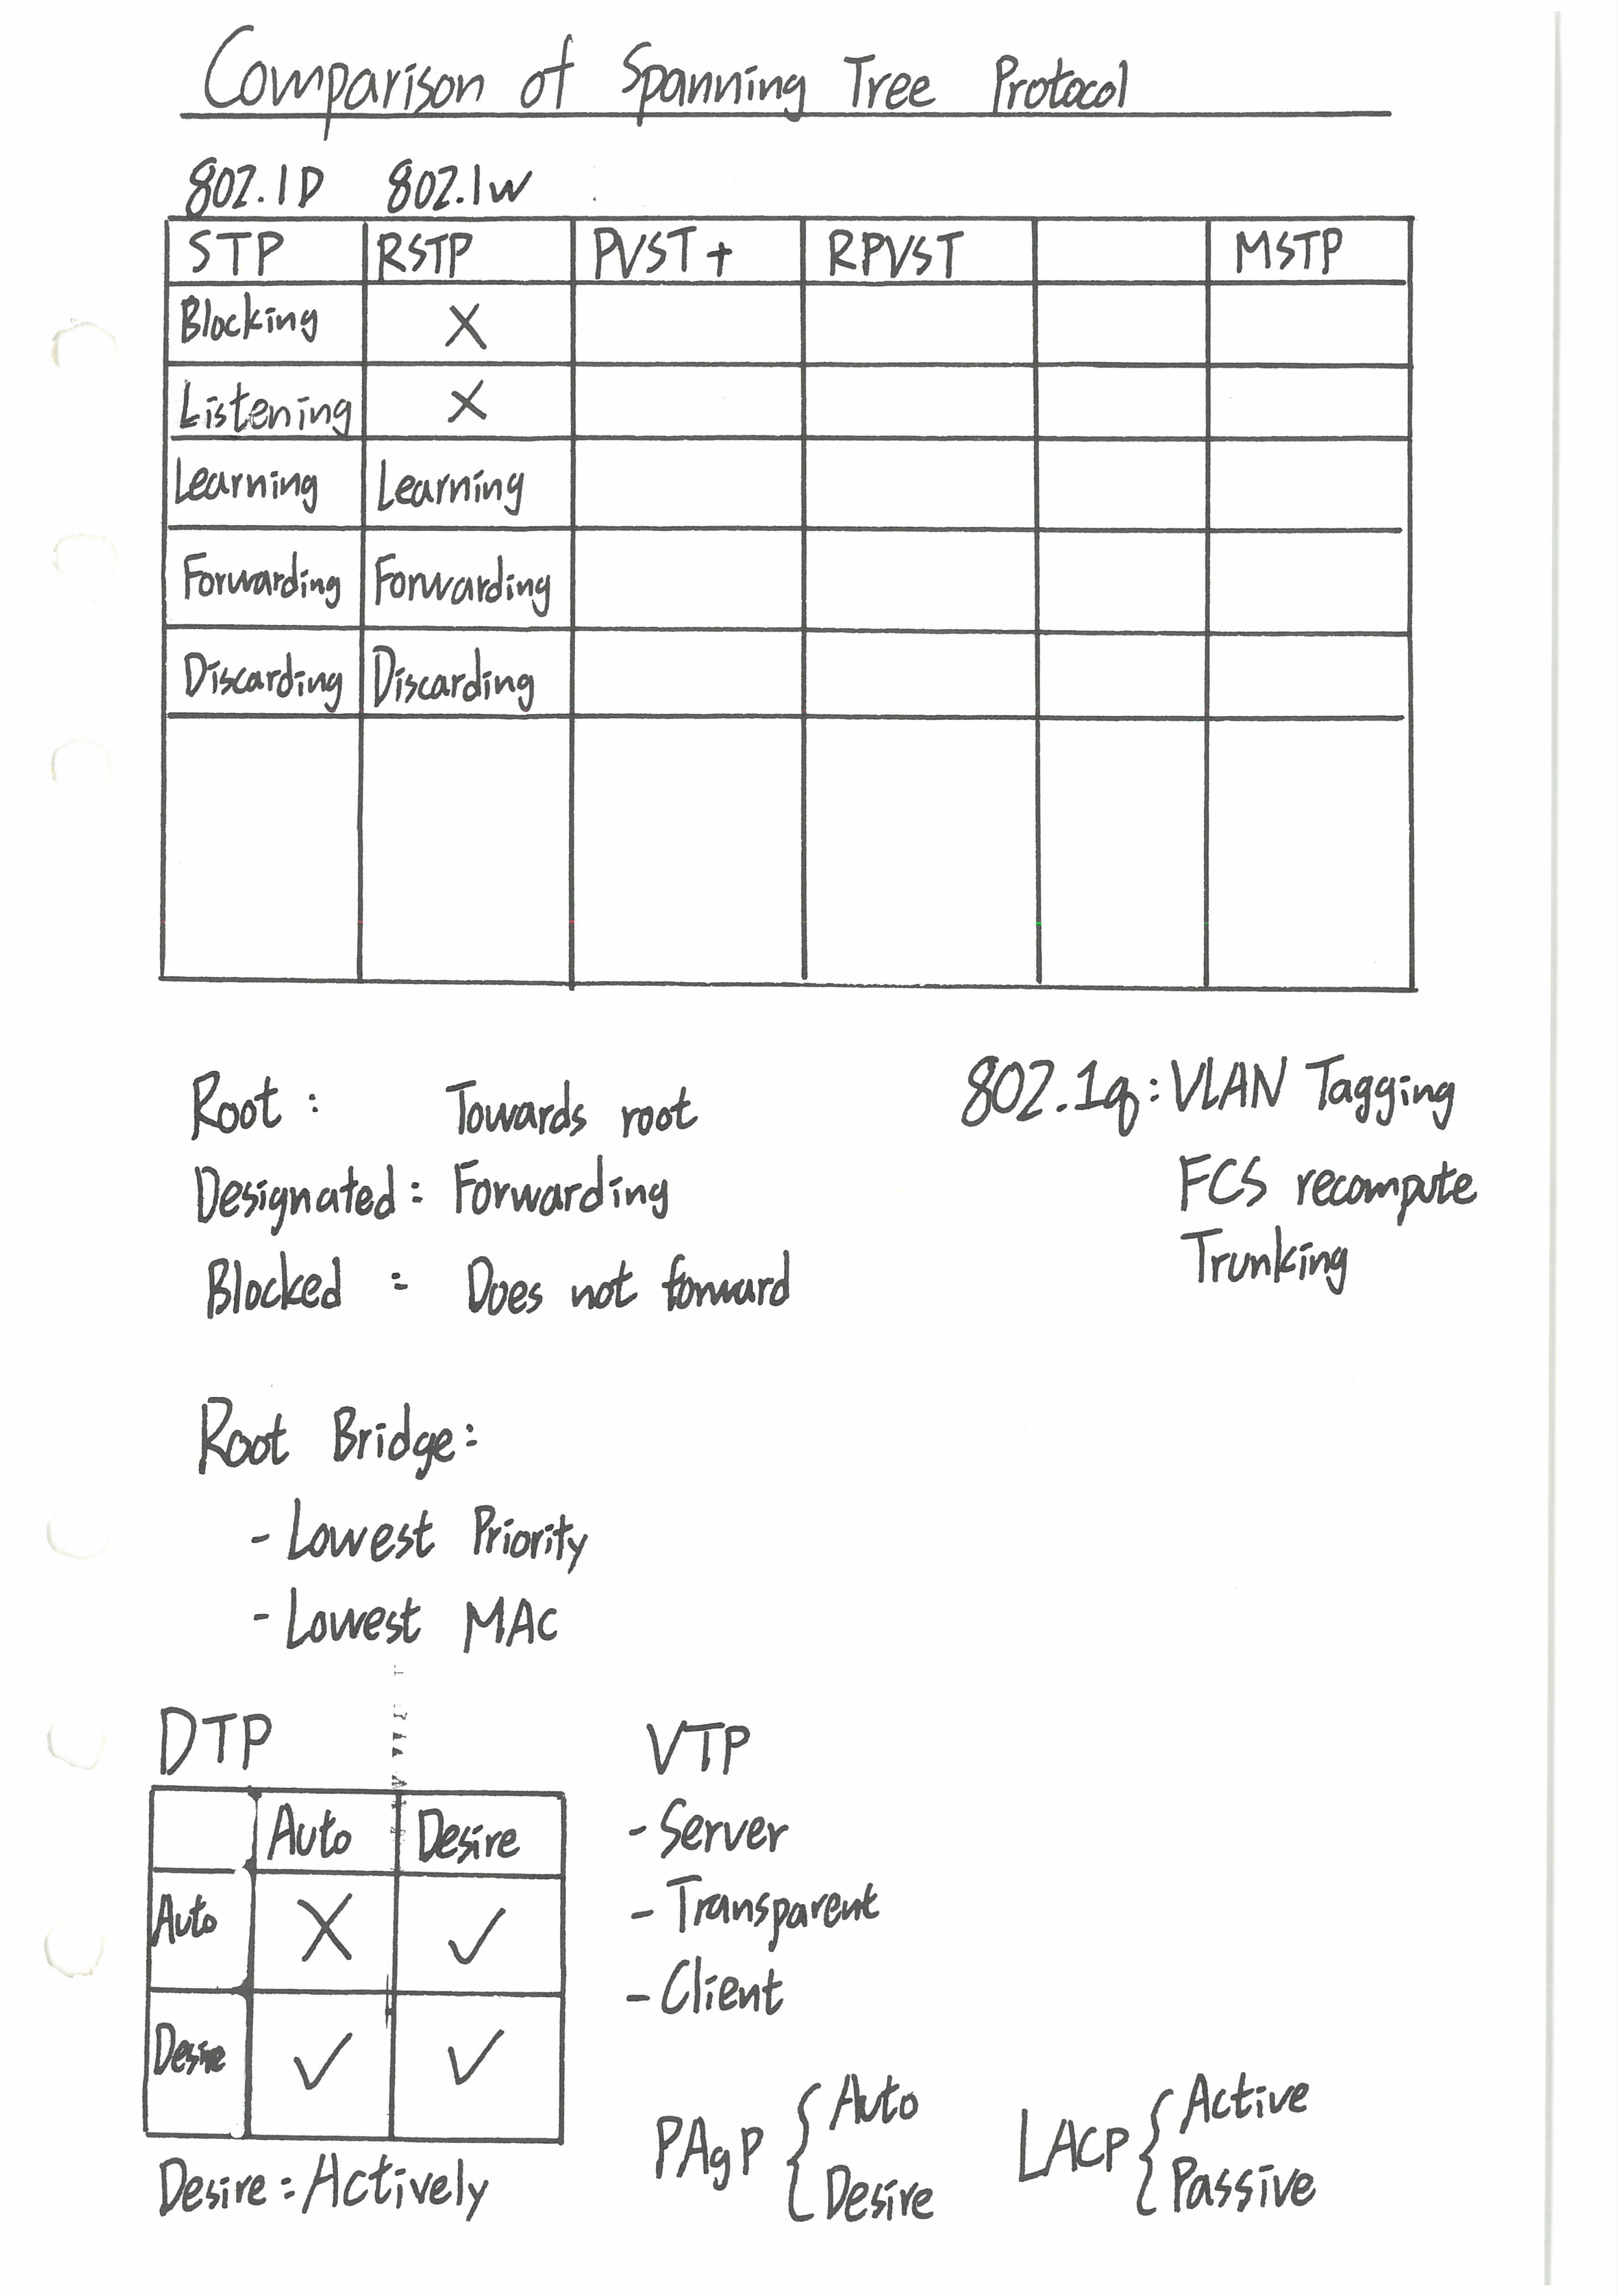 Comparison of Spanning Tree Protocol
802.1D 802.1w
STP RSTP PVST+ RPVST MSTP
Blocking X
Listening X
Learning Learning
Forwarding Forwarding
Discarding Discarding
Root : Towards root
Designated : Forwarding
Blocked : Does not forward
802.1q : VLAN Tagging
FCS recompute
Trunking
Root Bridge :
- Lowest Priority
- Lowest MAC
DTP
Auto Desire
Auto X ✓
Desire ✓ ✓
Desire : Actively
VTP
- Server
- Transparent
- Client
PAgP { Auto
Desire
LACP { Active
Passive